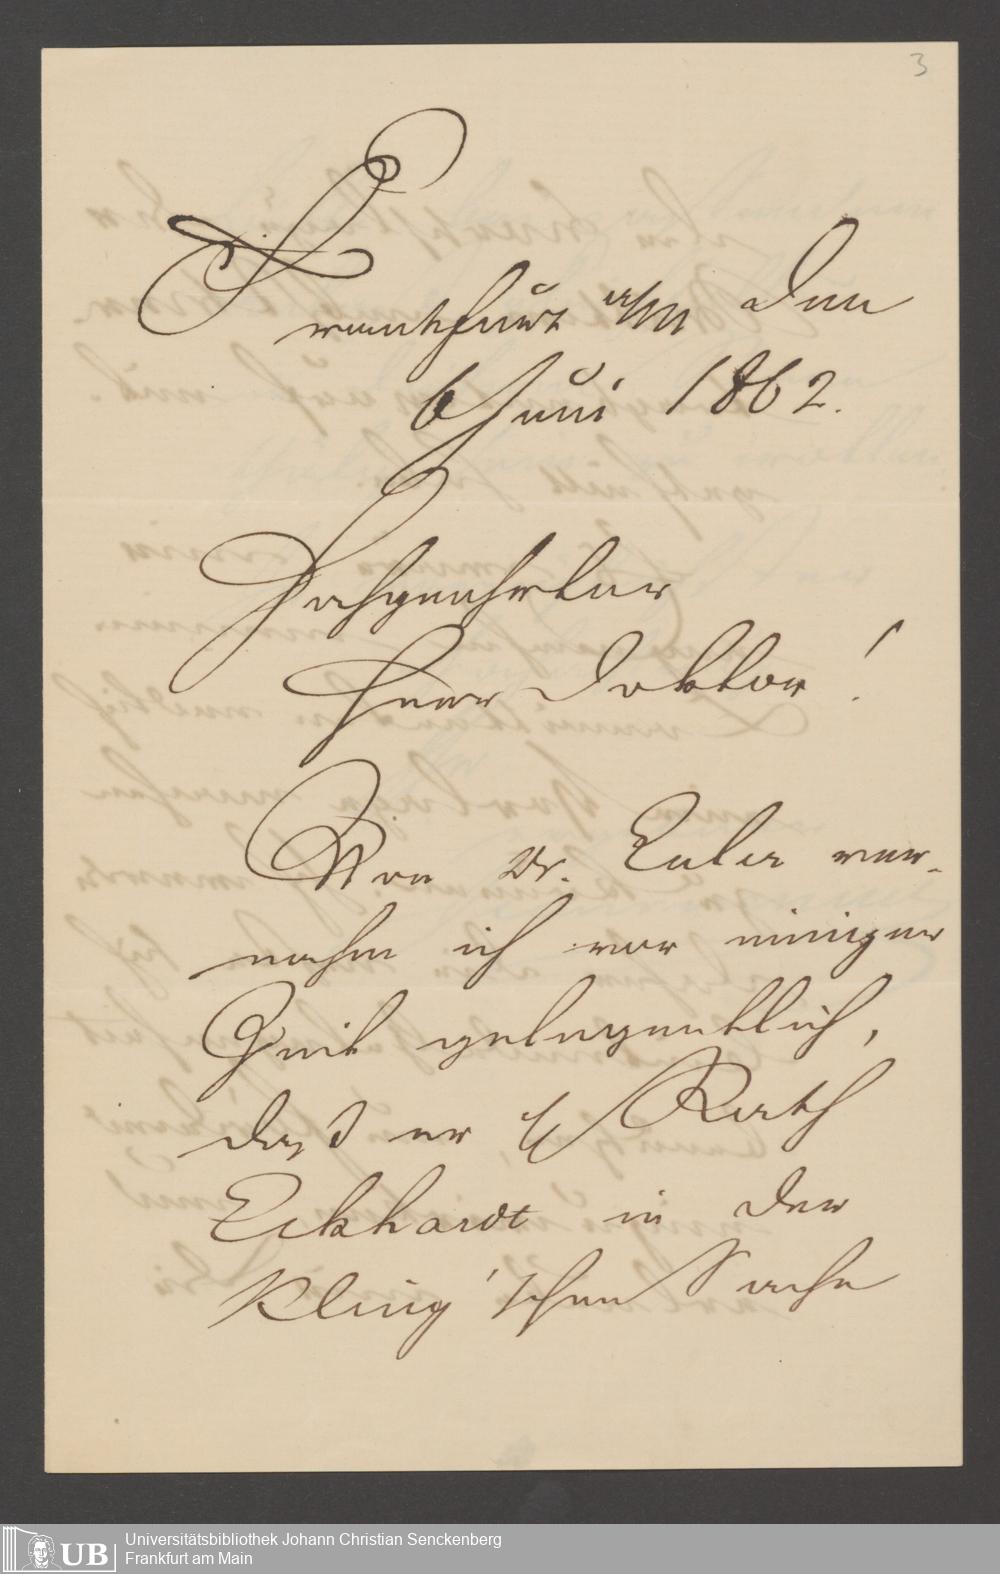 3
Frankfurt a/M den
6 Juni 1862.
Hochgeehrter
Herr Doktor!
Von Dr. Euler ver-
nahm ich vor einiger
Zeit gelegentlich,
daß er H Rath
Eckhardt in der
Kling'schen Sache
UB Universitätsbibliothek Johann Christian Senckenberg
Frankfurt am Main